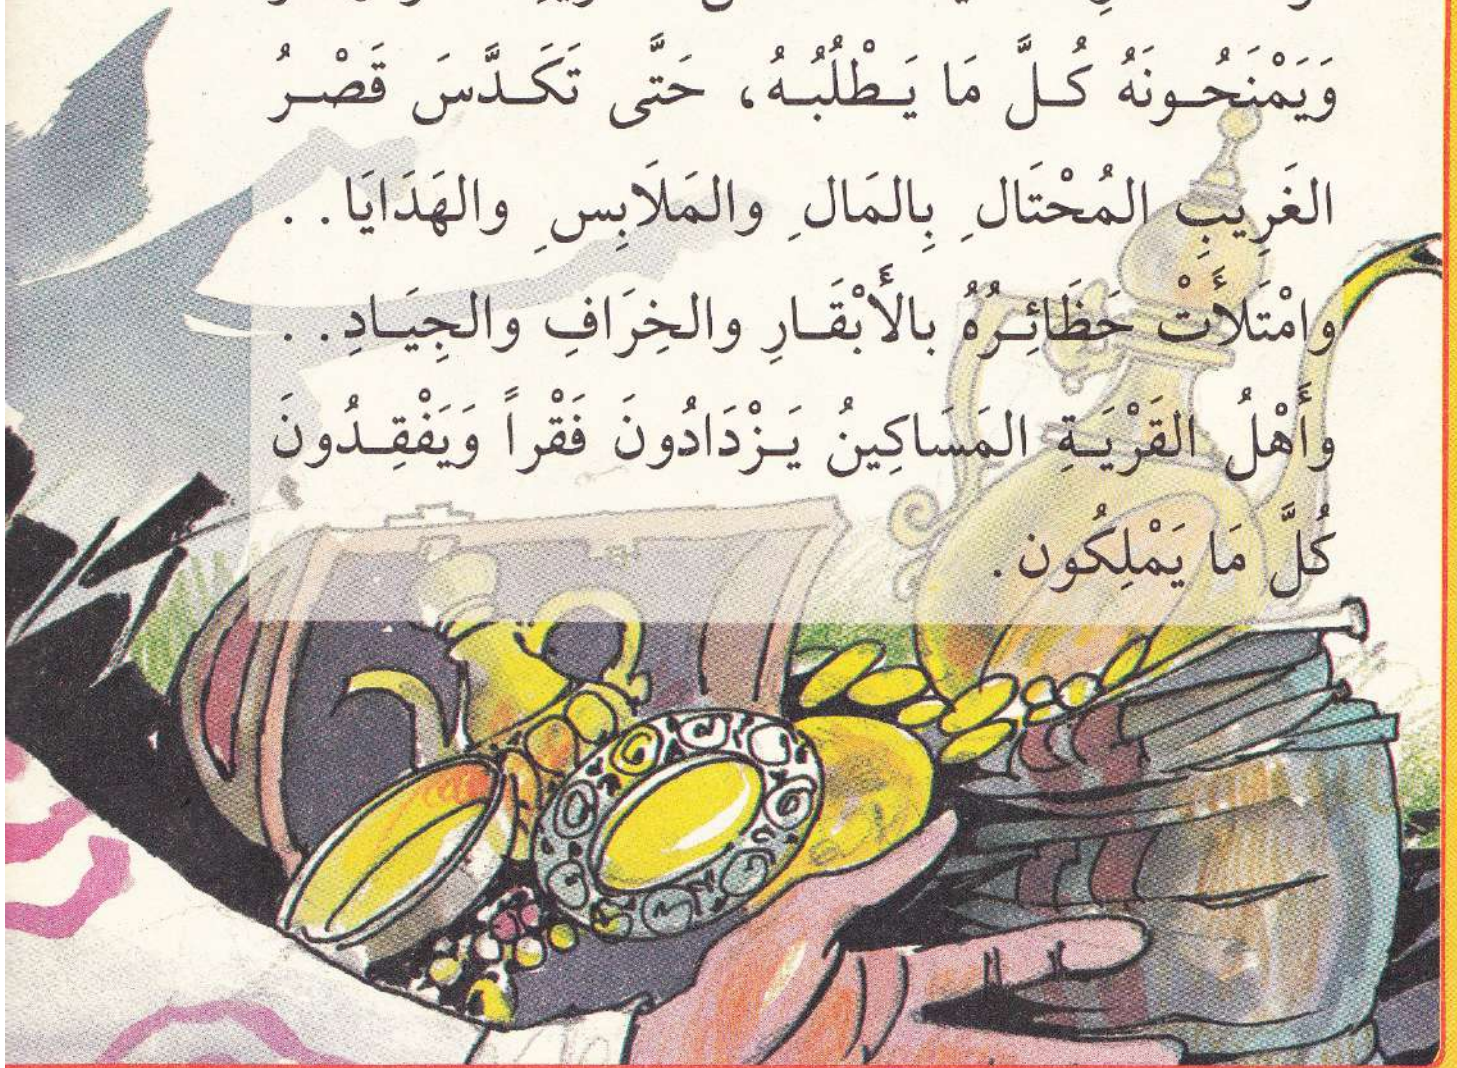 وَيَمْنَحُونَهُ كُلَّ مَا يَطْلُبُهُ، حَتَّى تَكَدَّسَ قَصْرُ
الغَرِيبِ المُحْتَالِ بِالمَالِ والمَلَابِسِ والهَدَايَا. .
وامْتَلأَتْ حَظَائِرُهُ بالأَبْقَارِ والخِرَافِ والجِيَادِ. .
وأَهْلُ القَرْيَةِ المَسَاكِينُ يَزْدَادُونَ فَقْراً وَيَفْقِدُونَ
كُلَّ مَا يَمْلِكُون.